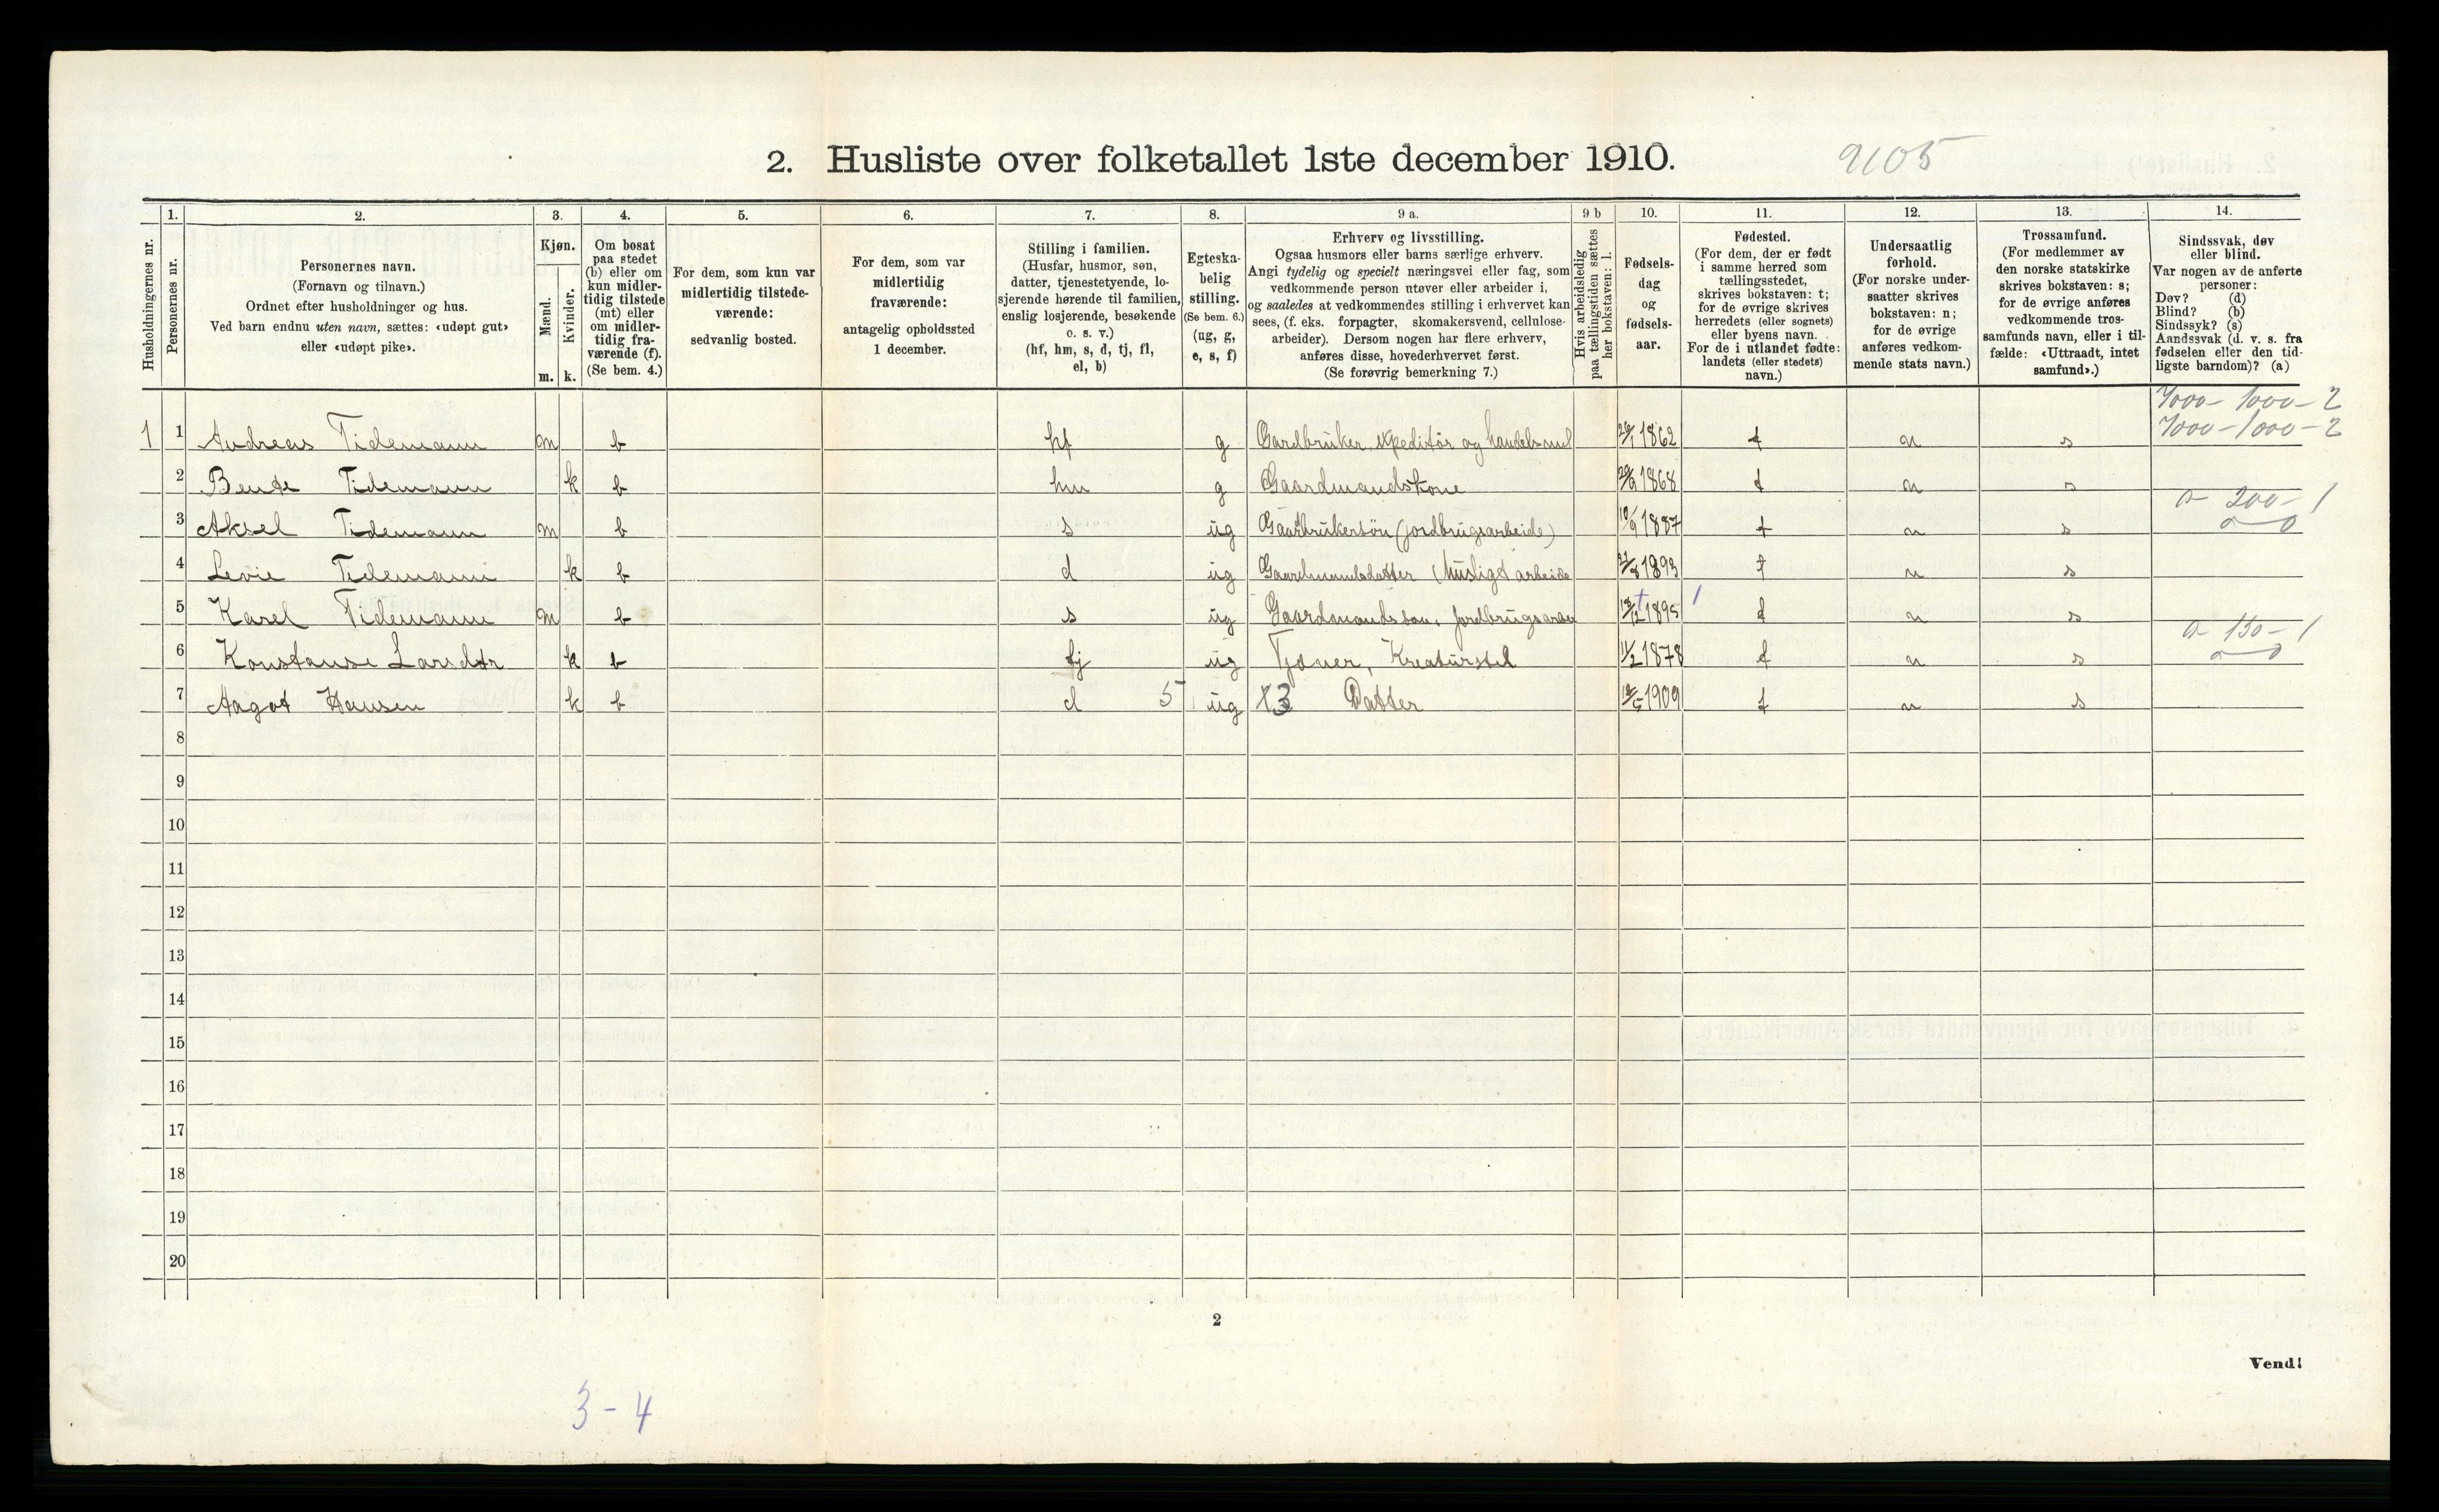 2. Husliste over folketallet 1ste december 1910.
9105
Husholdningernes nr.
1.
Personernes nr.
2.
Personernes navn.
(Fornavn og tilnavn.)
Ordnet efter husholdninger og hus.
Ved barn endnu uten navn, sættes: «udøpt gut»
eller «udøpt pike».
3.
Kjøn.
Mænd.
Kvinder.
m. k.
4.
Om bosat
paa stedet
(b) eller om
kun midler-
tidig tilstede
(mt) eller
om midler-
tidig fra-
værende (f).
(Se bem. 4.)
5.
For dem, som kun var
midlertidig tilstede-
værende:
sedvanlig bosted.
6.
For dem, som var
midlertidig
fraværende:
antagelig opholdssted
1 december.
7.
Stilling i familien.
(Husfar, husmor, søn,
datter, tjenestetyende, lo-
sjerende hørende til familien,
enslig losjerende, besøkende
o. s. v.)
(hf, hm, s, d, tj, fl,
el, b)
8.
Egteska-
belig
stilling.
(Se bem. 6.)
(ug, g,
e, s, f)
9 a.
Erhverv og livsstilling.
Ogsaa husmors eller barns særlige erhverv.
Angi tydelig og specielt næringsvei eller fag, som
vedkommende person utøver eller arbeider i,
og saaledes at vedkommendes stilling i erhvervet kan
sees, (f. eks. forpagter, skomakersvend, cellulose-
arbeider). Dersom nogen har flere erhverv,
anføres disse, hovederhvervet først.
(Se forøvrig bemerkning 7.)
9 b
Hvis arbeidsledig
paa tællingstiden sættes
her bokstaven: l.
10.
Fødsels-
dag
og
fødsels-
aar.
11.
Fødested.
(For dem, der er født
i samme herred som
tællingsstedet,
skrives bokstaven: t;
for de øvrige skrives
herredets (eller sognets)
eller byens navn.
For de i utlandet fødte:
landets (eller stedets)
navn.)
12.
Undersaatlig
forhold.
(For norske under-
saatter skrives
bokstaven: n;
for de øvrige
anføres vedkom-
mende stats navn.)
13.
Trossamfund.
(For medlemmer av
den norske statskirke
skrives bokstaven: s;
for de øvrige anføres
vedkommende tros-
samfunds navn, eller i til-
fælde: «Uttraadt, intet
samfund».)
14.
Sindssvak, døv
eller blind.
Var nogen av de anførte
personer:
Døv? (d)
Blind? (b)
Sindssyk? (s)
Aandssvak (d. v. s. fra
fødselen eller den tid-
ligste barndom)? (a)
7000 - 1000 - 2
1 1 Andreas Tidemann m b hf g Gardbruker, expeditør og handelsmd 1862 t n s 7000 - 1000 - 2
2 Bente Tidemann k b hm g Gaardmandskone 1868 t n s
0 - 200 - 1
3 Aksel Tidemann m b s ug Gaarbrukersön (jordbrugsarbeide) 10/9 1887 t n s 0 0
4 Levie Tidemann k b d ug Gaardmandsdatter (husligt arbeide 1893 t n s
5 Karel Tidemann m b s ug Gaardmandsson, jordbrugsarbei 1895 t n s
0 - 150 - 1
6 Konstanse Larsdtr k b tj ug Tjener, Kreaturstel 11/2 1878 t n s 0 0
7 Aagot Hansen k b d 5 ug X3 Datter 1909 t n s
8
9
10
11
12
13
14
15
16
17
18
19
20
2
Vend!
3 - 4